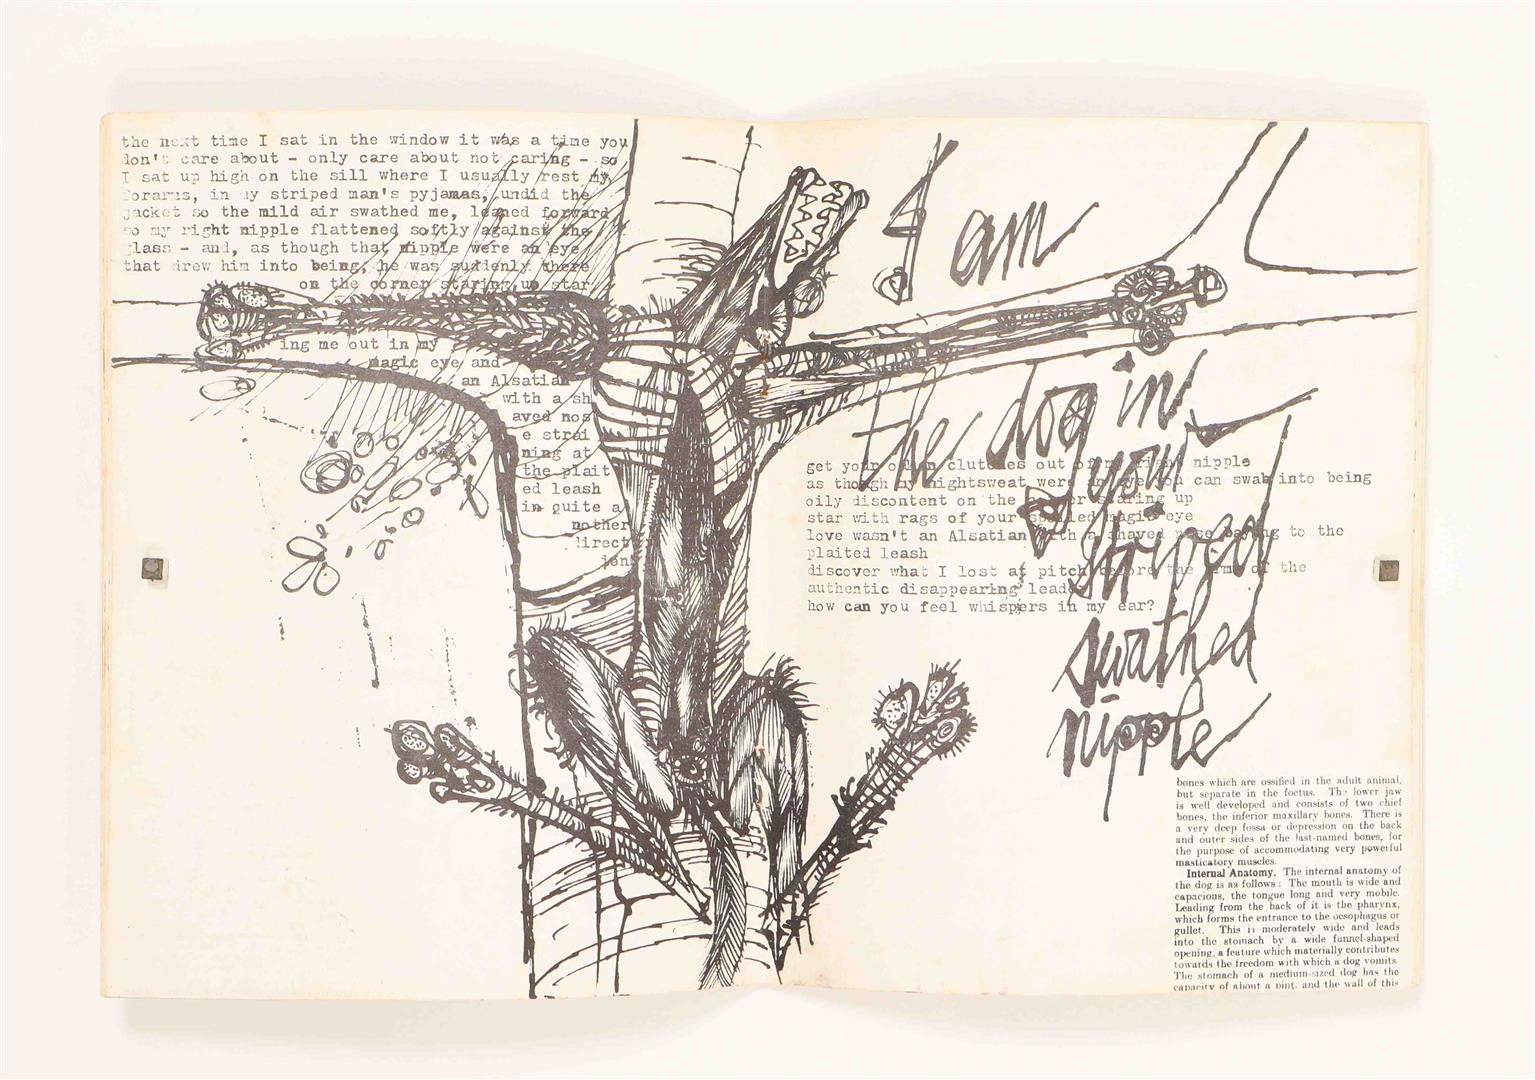 the next time I sat in the window it was a time you
don't care about - only care about not caring - so
I sat up high on the sill where I usually rest my
forarms, in my striped man's pyjamas, undid the
jacket so the mild air swathed me, leaned forward
so my right nipple flattened softly against the
glass - and, as though that nipple were an eye
that drew him into being, he was suddenly there
on the corner staring up star
ing me out in my
magic eye and
an Alsatian
with a sh
aved nos
e strai
ning at
the plait
ed leash
in quite a
nother
direct
ion
I am
the dog in
your
striped
swathed
nipple
get your clutches out of my right nipple
as though my nightsweat were an eye you can swab into being
oily discontent on the corner staring up
star with rags of your magic eye
love wasn't an Alsatian with a shaved nose baying to the
plaited leash
discover what I lost at pitch before the arms of the
authentic disappearing leads
how can you feel whispers in my ear?
bones which are ossified in the adult animal,
but separate in the foetus. The lower jaw
is well developed and consists of two chief
bones, the inferior maxillary bones. There is
a very deep fossa or depression on the back
and outer sides of the last-named bones, for
the purpose of accommodating very powerful
masticatory muscles.
Internal Anatomy. The internal anatomy of
the dog is as follows: The mouth is wide and
capacious, the tongue long and very mobile.
Leading from the back of it is the pharynx,
which forms the entrance to the oesophagus or
gullet. This is moderately wide and leads
into the stomach by a wide funnel-shaped
opening, a feature which materially contributes
towards the freedom with which a dog vomits.
The stomach of a medium-sized dog has the
capacity of about a pint, and the wall of this